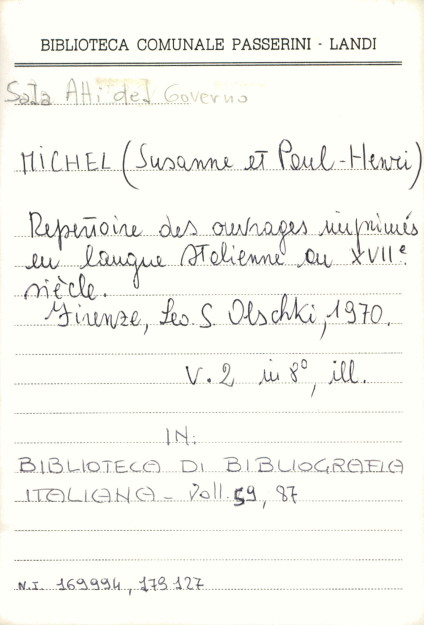 BIBLIOTECA COMUNALE PASSERINI - LANDI
Sala Atti del Governo
MICHEL (Susanne et Paul-Henri)
Repertoire des ouvrages imprimés
en langue Italienne au XVIIe
siècle.
Firenze, Leo S. Olschki, 1970.
V. 2 in 8°, ill.
IN:
BIBLIOTECA DI BIBLIOGRAFIA
ITALIANA - Voll. 59, 87
N.I. 169994, 179127